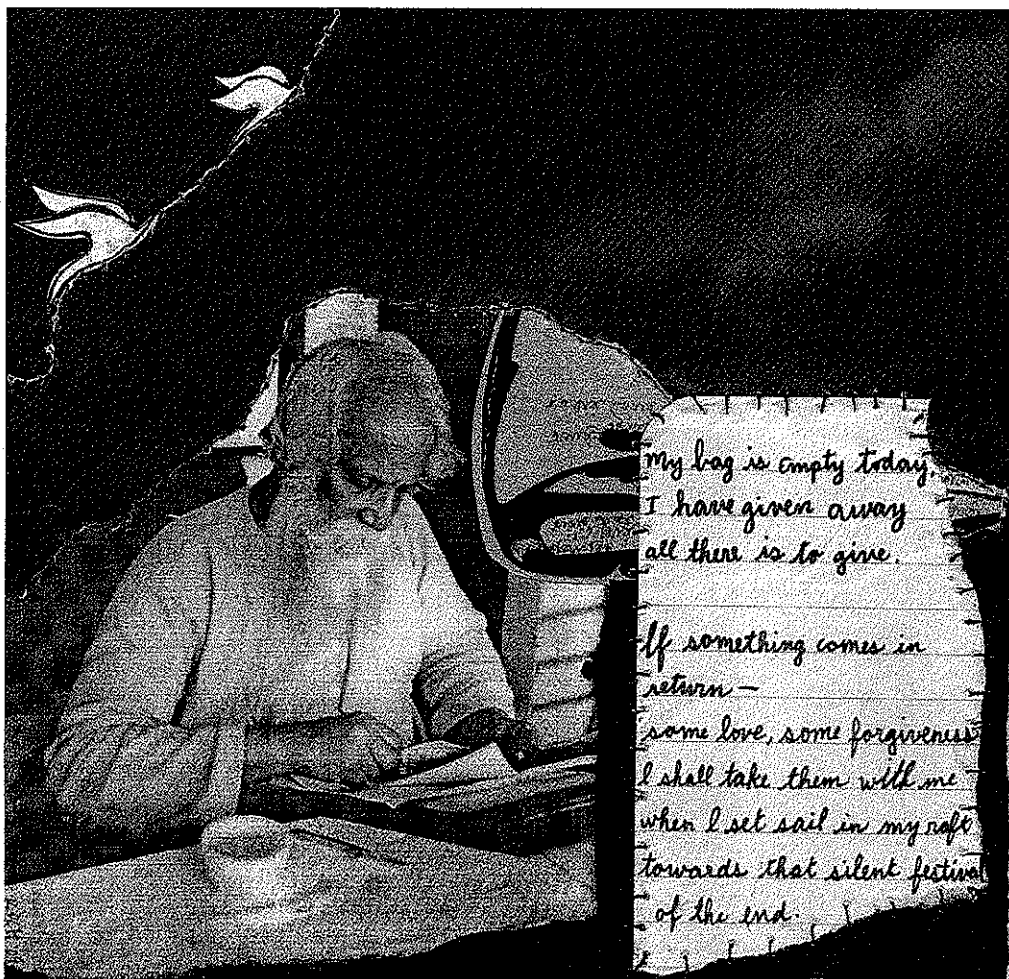 My bag is empty today.
I have given away
all there is to give.
If something comes in
return —
some love, some forgiveness
I shall take them with me
when I set sail in my raft
towards that silent festival
of the end.